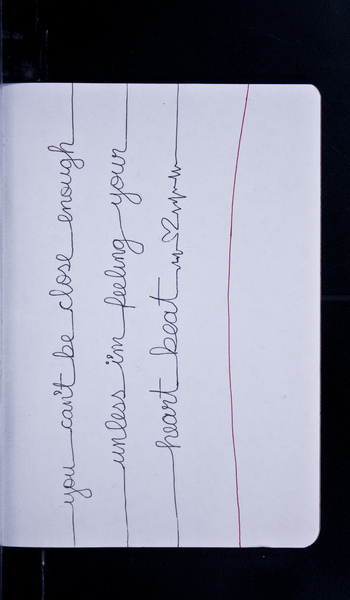 you can't be close enough
unless i'm feeling your
heart beat